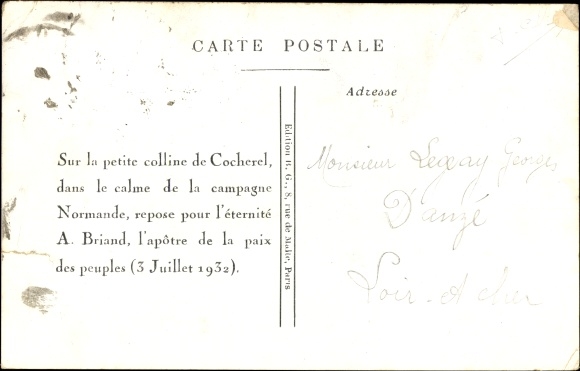 CARTE POSTALE
Sur la petite colline de Cocherel,
dans le calme de la campagne
Normande, repose pour l'éternité
A. Briand, l'apôtre de la paix
des peuples (3 Juillet 1932).
Edition R. G., 8, rue de Malte, Paris
Adresse
Monsieur Georges
Danzé
Loir-et-Cher